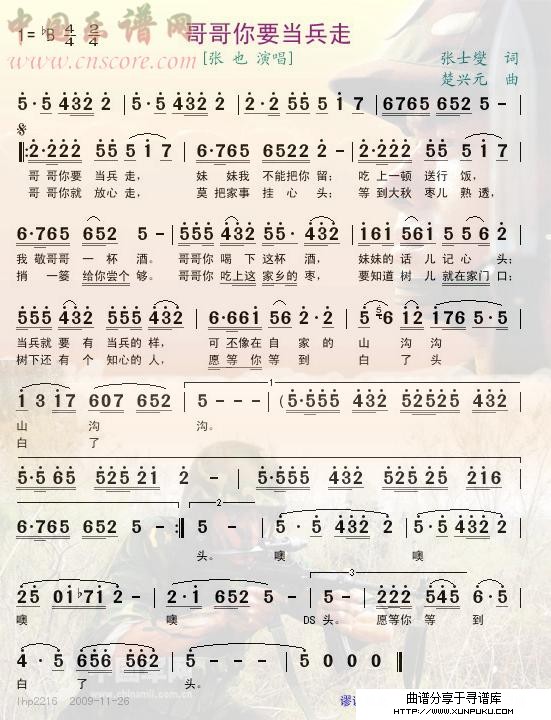 中国乐谱网
www.cnscore.com
1=♭B 4/4 2/4 哥哥你要当兵走
[张 也 演唱]
张士燮 词
楚兴元 曲
5·5 432 2 | 5·5 432 2 | 2·2 55 5 1 7 | 6765 652 5 - |
2·222 55 5 1 7 | 6·765 6522 2 - | 2·222 55 5 1 7 |
哥 哥你要 当兵 走, 妹 妹我 不能把你 留; 吃 上一顿 送行 饭,
哥 哥你就 放心 走, 莫 把家事 挂 心 头; 等 到大秋 枣儿 熟透,
6·765 652 5 - | 555 432 55·432 | 161 0561 5562 |
我 敬哥哥 一 杯 酒。 哥哥你 喝 下 这杯 酒, 妹妹的 话 儿 记 心 头;
捎 一篓 给你尝个 够。 哥哥你 吃上这 家乡的 枣, 要知道 树 儿 就在家门 口;
555 432 555 432 | 6·661 56 2·2 | 5 6 12 176 5·5 |
当兵就 要 有 当兵的 样, 可 不像在 自 家 的 山 沟 沟
树下还 有 个 知心的 人, 愿 等 你 等 到 白 了 头
1 3 17 607 652 | 5 - - - | (5·555 432 52525 432 |
山 沟 沟。
白 了
5·5 65 525 21 2 - | 5·555 432 525 25 216 |
6·765 652 5 - :| 5 - | 5·5 432 2 | 5·5 432 2 |
头。 噢 噢
25 01♭71 2 - | 2·1 652 5 - | 5 - | 222 545 6·6 |
噢 噢 DS 头。 愿等你 等 到
4·5 656 562 | 5 - 5 0 0 0 ||
白 了 头。
lhp2216 2009-11-26
www.chinamil.com.cn
曲谱分享于寻谱库
HTTP://WWW.XUNPUKU.COM